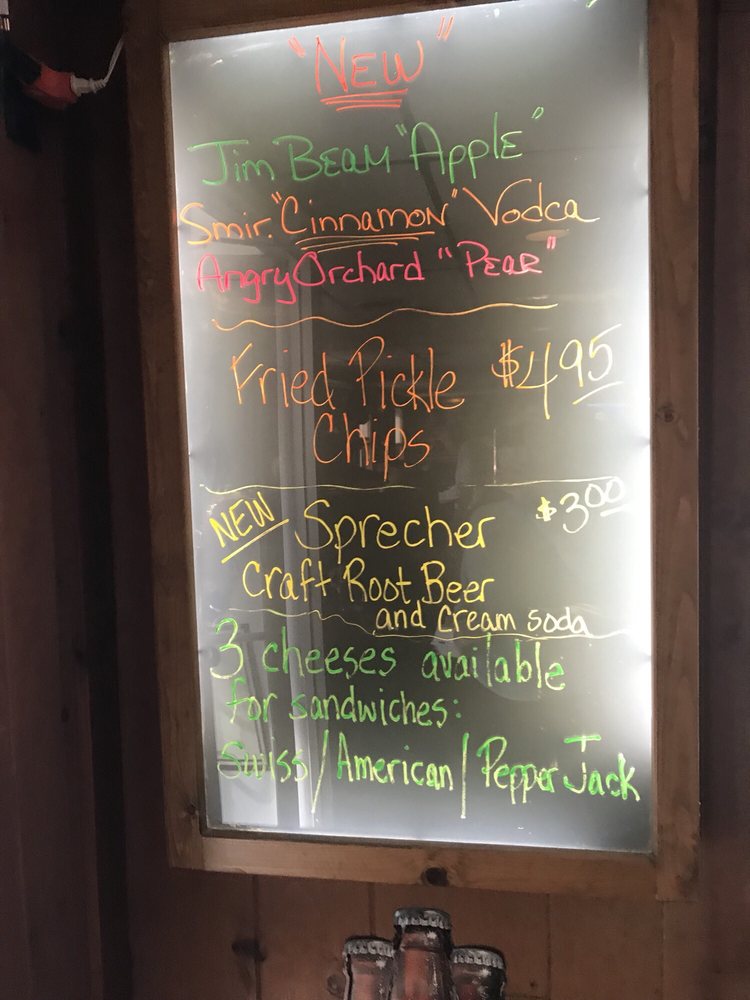 "NEW"
Jim BEAM "Apple"
Smir. "Cinnamon" Vodca
Angry Orchard "PEAR"
Fried Pickle $4.95
Chips
NEW Sprecher $3.00
Craft Root Beer
and cream soda
3 cheeses available
for sandwiches:
Swiss/American/Pepper Jack